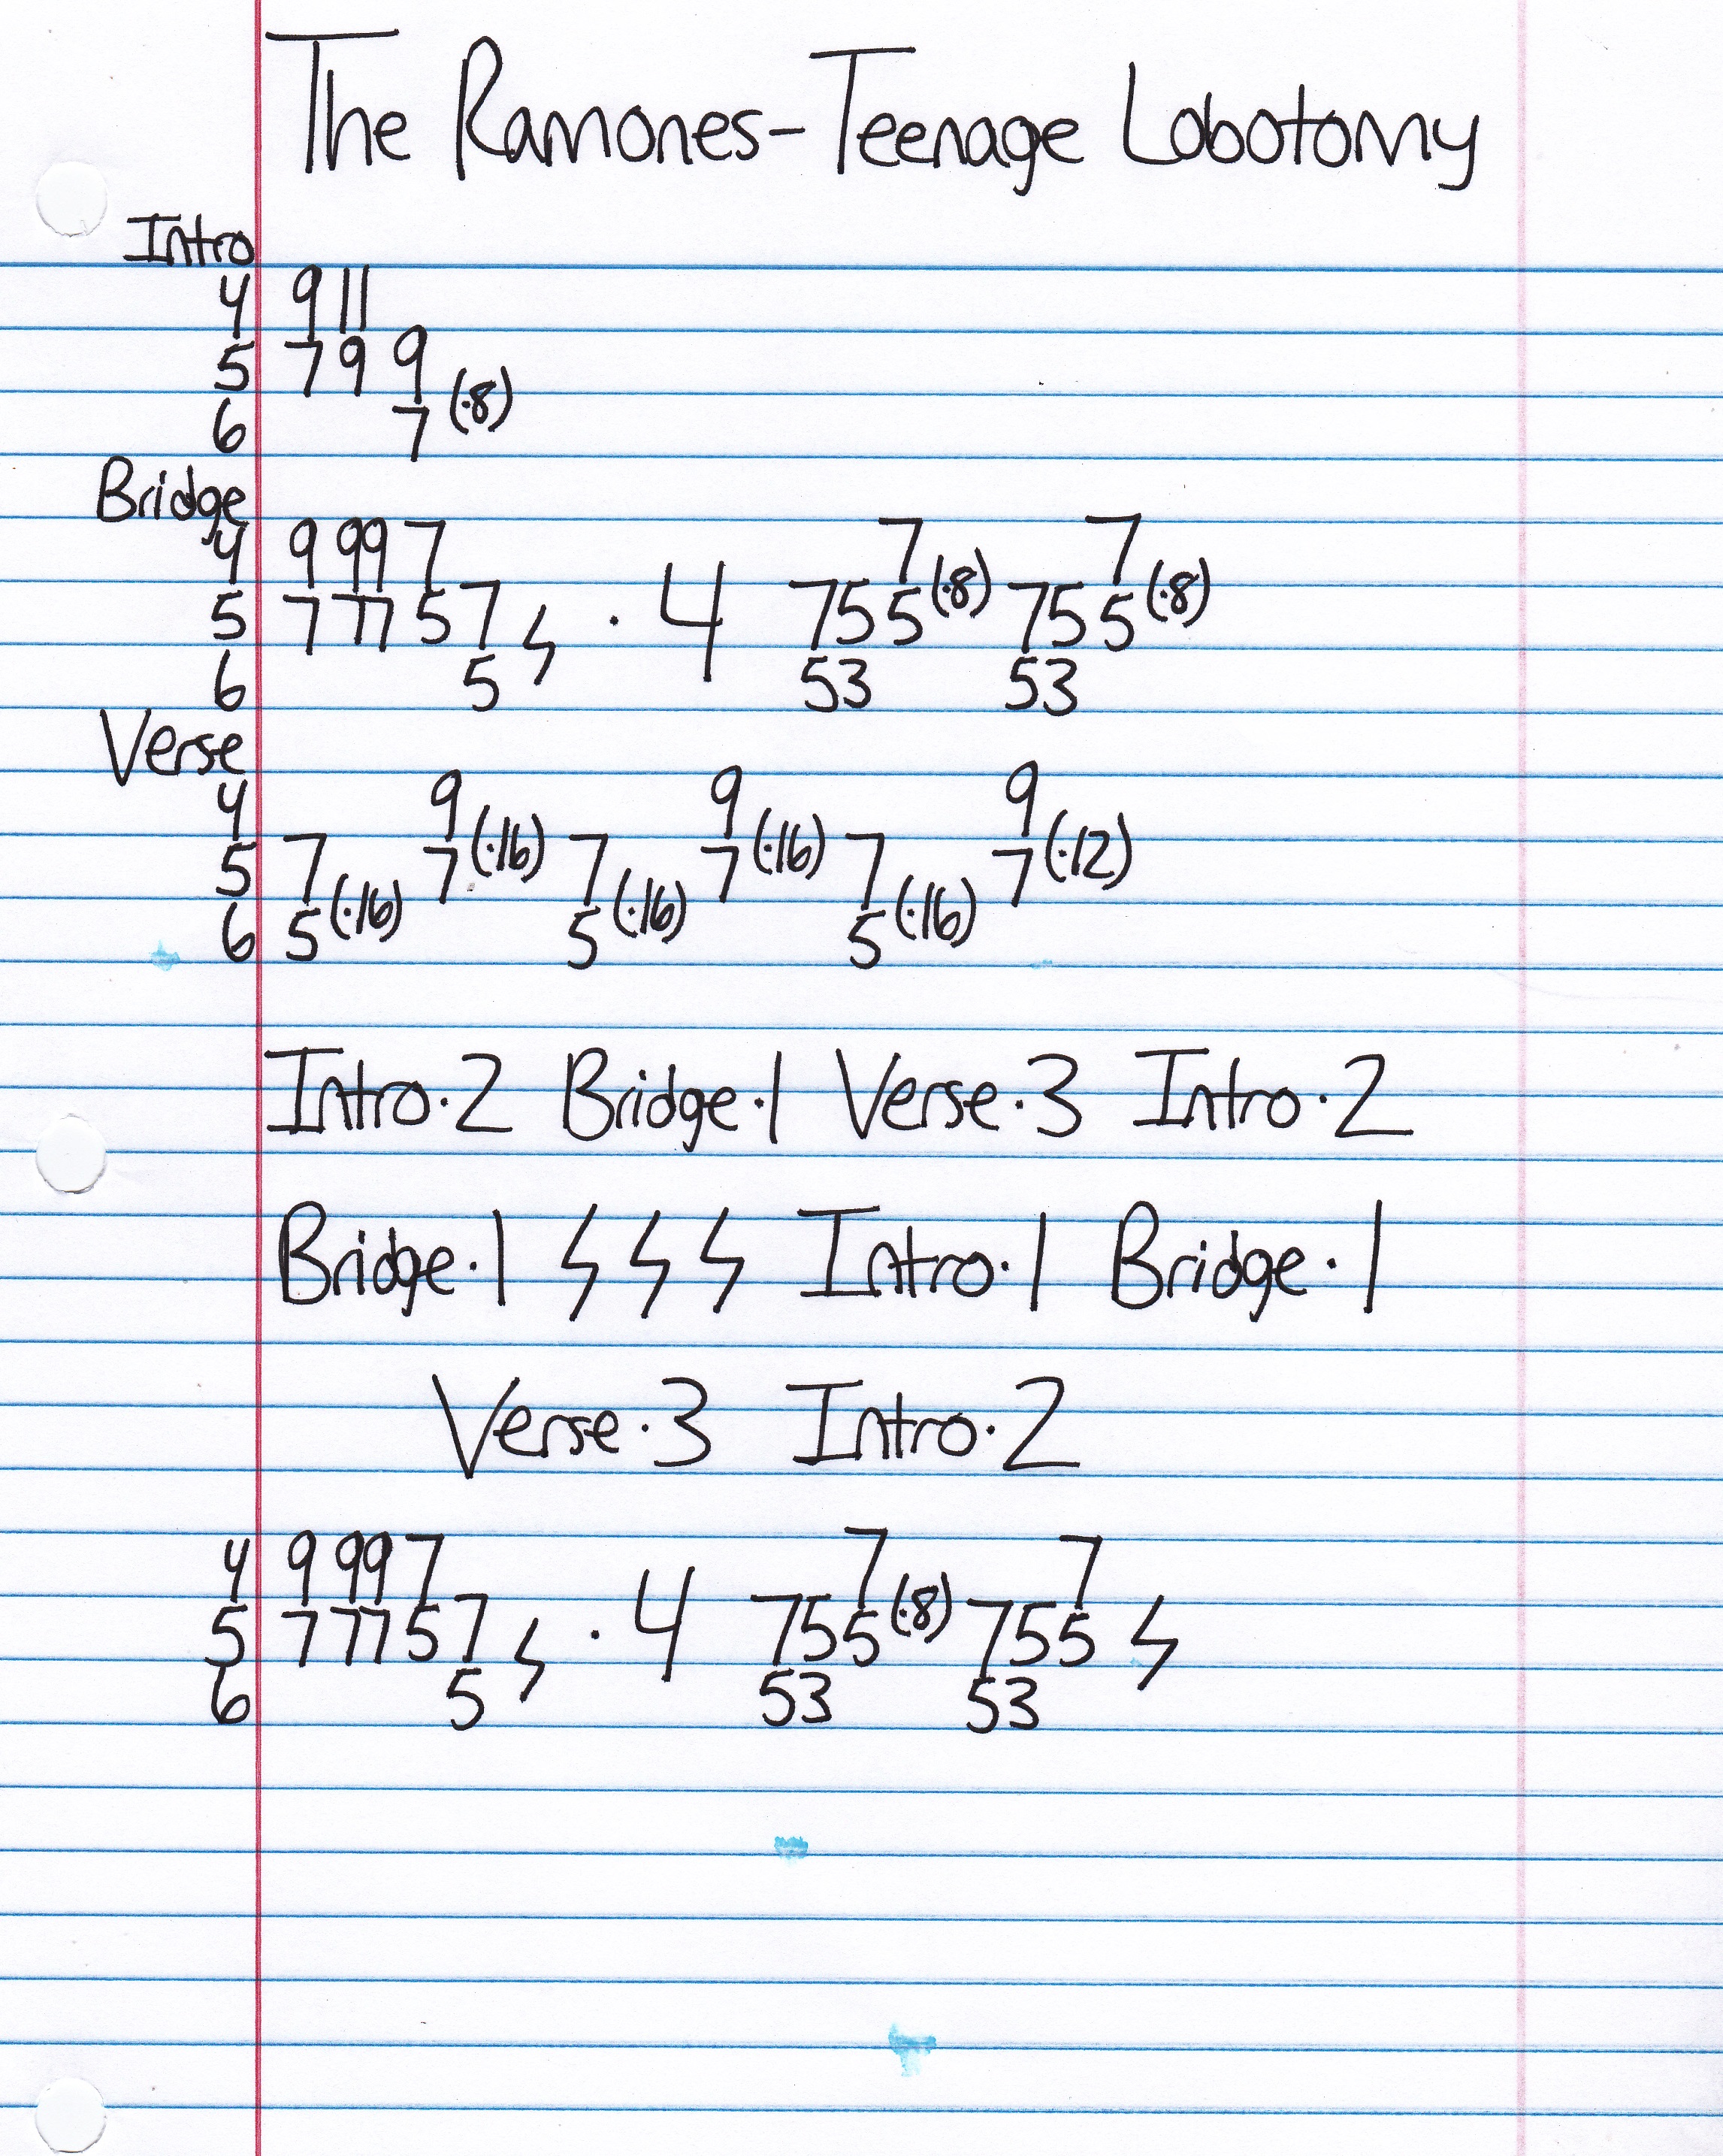 The Ramones-Teenage Lobotomy
Intro
4 9 11
5 7 9 9
6 7 (·8)
Bridge
4 9 99 7 7 7
5 7 77 5 7 ϟ · 4 75 5 (·8) 75 5 (·8)
6 5 53 53
Verse
4 9 9 9
5 7 7 (·16) 7 7 (·16) 7 7 (·12)
6 5 (·16) 5 (·16) 5 (·16)
Intro·2 Bridge·1 Verse·3 Intro·2
Bridge·1 ϟ ϟ ϟ Intro·1 Bridge·1
Verse·3 Intro·2
4 9 99 7 7 7
5 7 77 5 7 ϟ · 4 755 (·8) 755 ϟ
6 5 53 53